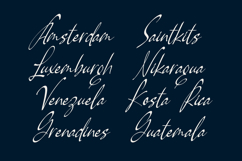 Amsterdam
Saintkits
Luxemburgh
Nikaragua
Venezuela
Kosta Rica
Grenadines
Guatemala